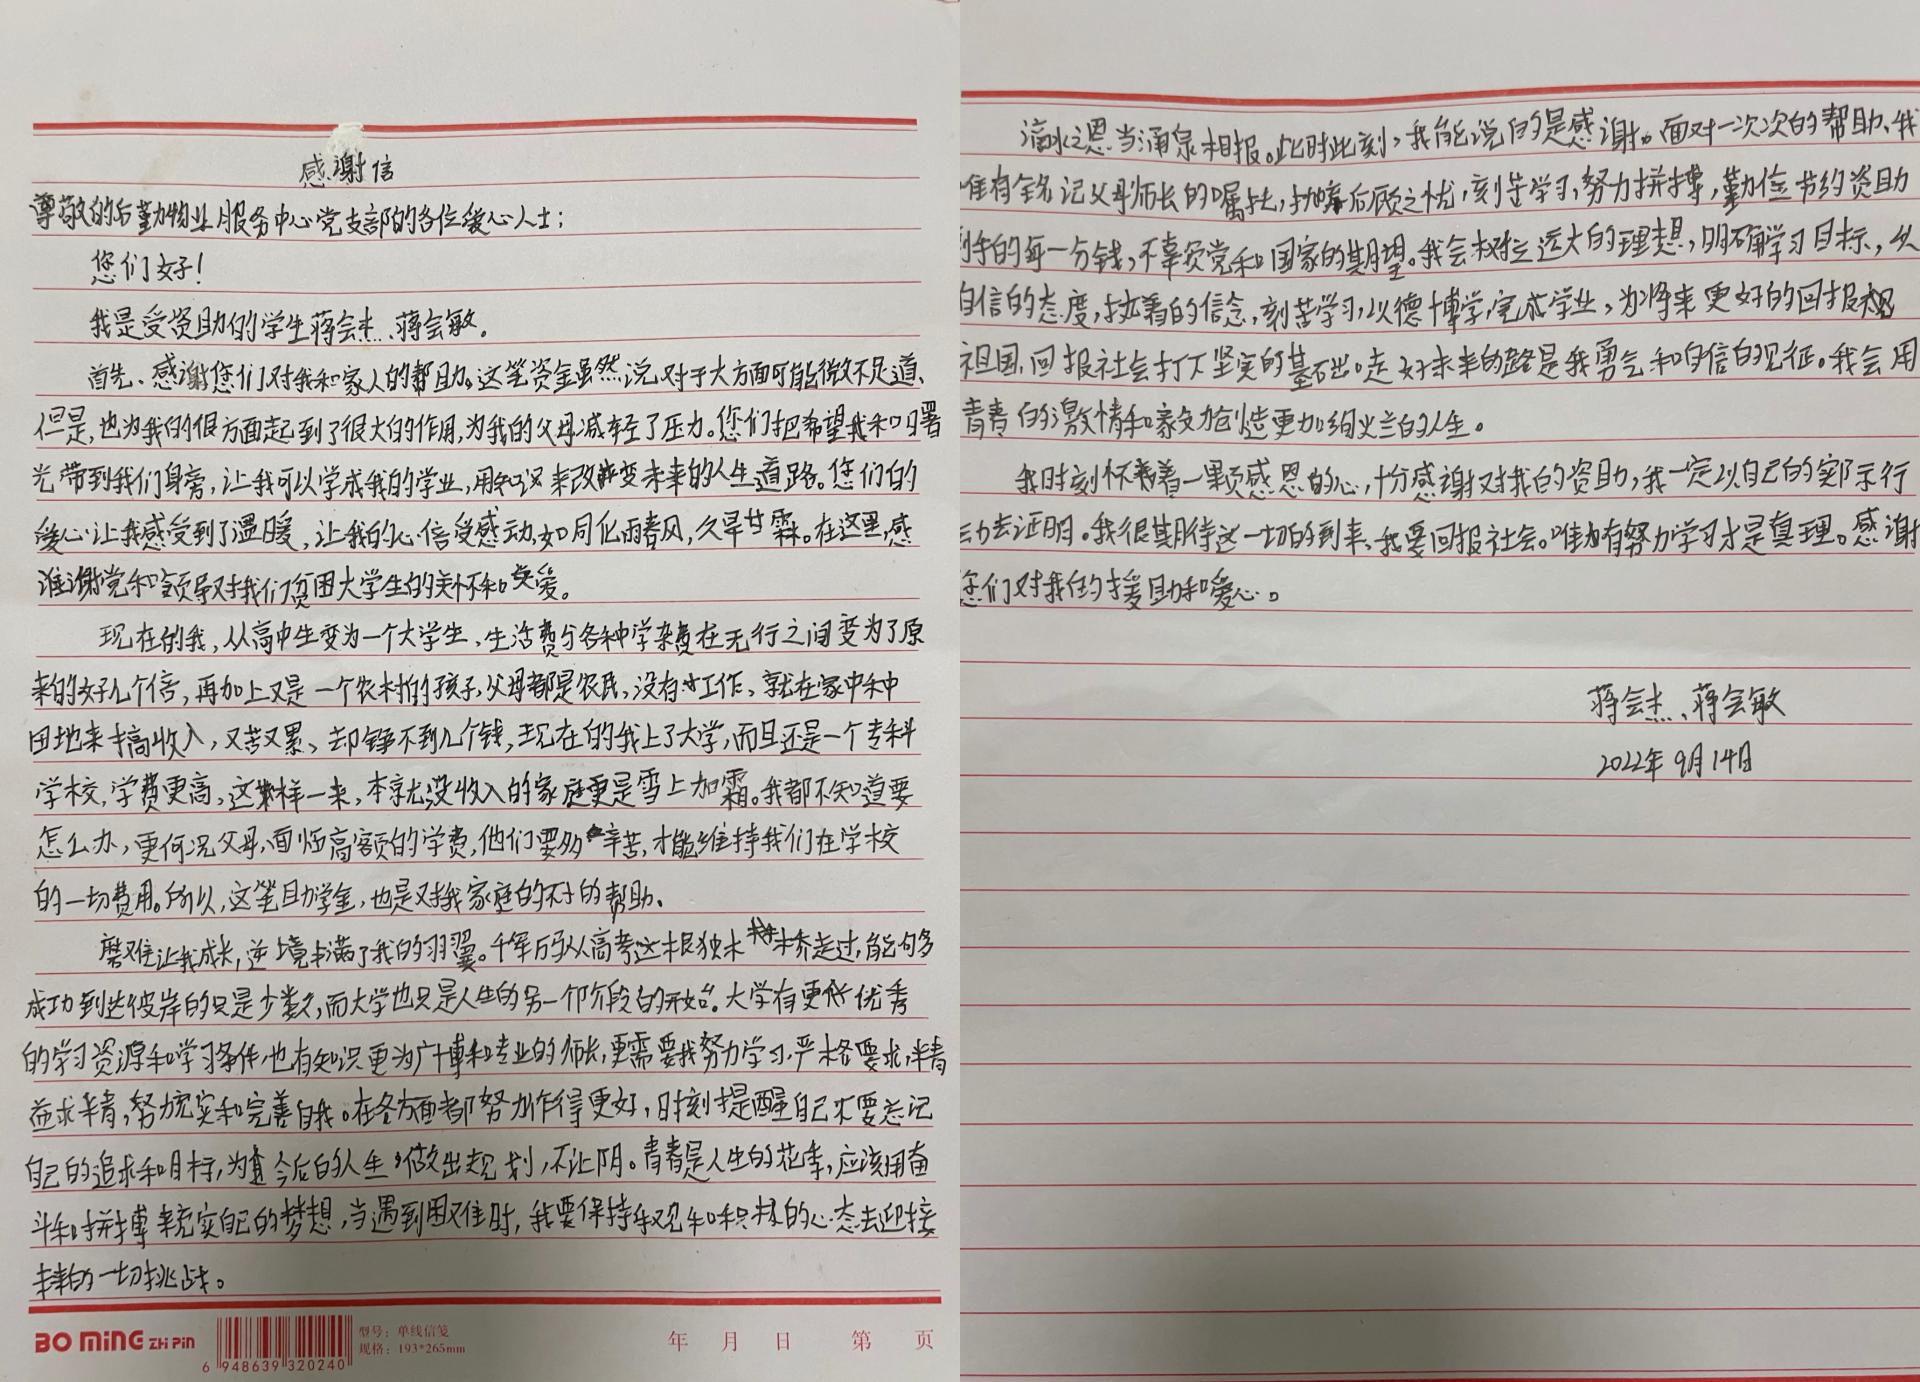 感谢信
尊敬的后勤物业服务中心党支部的各位爱心人士：
您们好！
我是受资助的学生蒋会杰、蒋会敏。
首先、感谢您们对我和家人的帮助。这笔资金虽然说对于大方面可能微不足道、
但是，也为我的很方面起到了很大的作用，为我的父母减轻了压力。您们把希望我和曙
光带到我们身旁，让我可以学成我的学业，用知识来改变未来的人生道路。您们的
爱心让我感受到了温暖，让我的心倍受感动，如同化雨春风，久旱甘霖。在这里，感
谢党和领导对我们贫困大学生的关怀和关爱。
现在的我，从高中生变为一个大学生、生活费与各种学杂费在无行之间变为了原
来的好几个倍，再加上又是一个农村的孩子，父母都是农民，没有工作、就在家中种
田地来搞收入，又苦又累、却铮不到几个钱，现在的我上了大学，而且还是一个专科
学校，学费更高，这样一来，本就没收入的家庭更是雪上加霜。我都不知道要
怎么办，更何况父母，面临高额的学费，他们要多辛苦，才能维持我们在学校
的一切费用。所以，这笔助学金，也是对我家庭的不小的帮助、
磨难让我成长，逆境丰满了我的羽翼。千军万马从高考这根独木桥走过，能句多
成功到达彼岸的只是少数，而大学也只是人生的另一个阶段的开始。大学有更优秀
的学习资源和学习条件，也有知识更为广博和专业的师长，更需要我努力学习，严格要求，精
益求精，努力充实和完善自我。在各方面都努力作得更好，时刻提醒自己不要忘记
自己的追求和目标，为今后的人生做出规划，不让阴。青春是人生的花季，应该用奋
斗和拼搏来充实自己的梦想，当遇到困难时，我要保持乐观和积极的心态去迎接
未来的一切挑战。
BO MING ZHI PIN
6 948639 320240
型号：单线信笺
规格：193*265mm
年 月 日 第 页
滴水之恩当涌泉相报。此时此刻，我能说的是感谢。面对一次次的帮助、我
唯有铭记父母师长的嘱托，抛弃后顾之忧，刻苦学习，努力拼搏，勤俭节约资助
到手的每一分钱，不辜负党和国家的期望。我会树立远大的理想，明确学习目标，以
自信的态度，执着的信念，刻苦学习，以德博学，完成学业，为将来更好的回报
祖国，回报社会打下坚实的基础。走好未来的路是我勇气和自信的见征。我会用
青春的激情和毅力创造更加绚烂的人生。
我时刻怀着一颗感恩的心，十分感谢对我的资助，我一定以自己的实际行
动去证明。我很期待这一切的到来、我要回报社会。唯有努力学习才是真理。感谢
您们对我的援助和爱心。
蒋会杰、蒋会敏
2022年9月14日